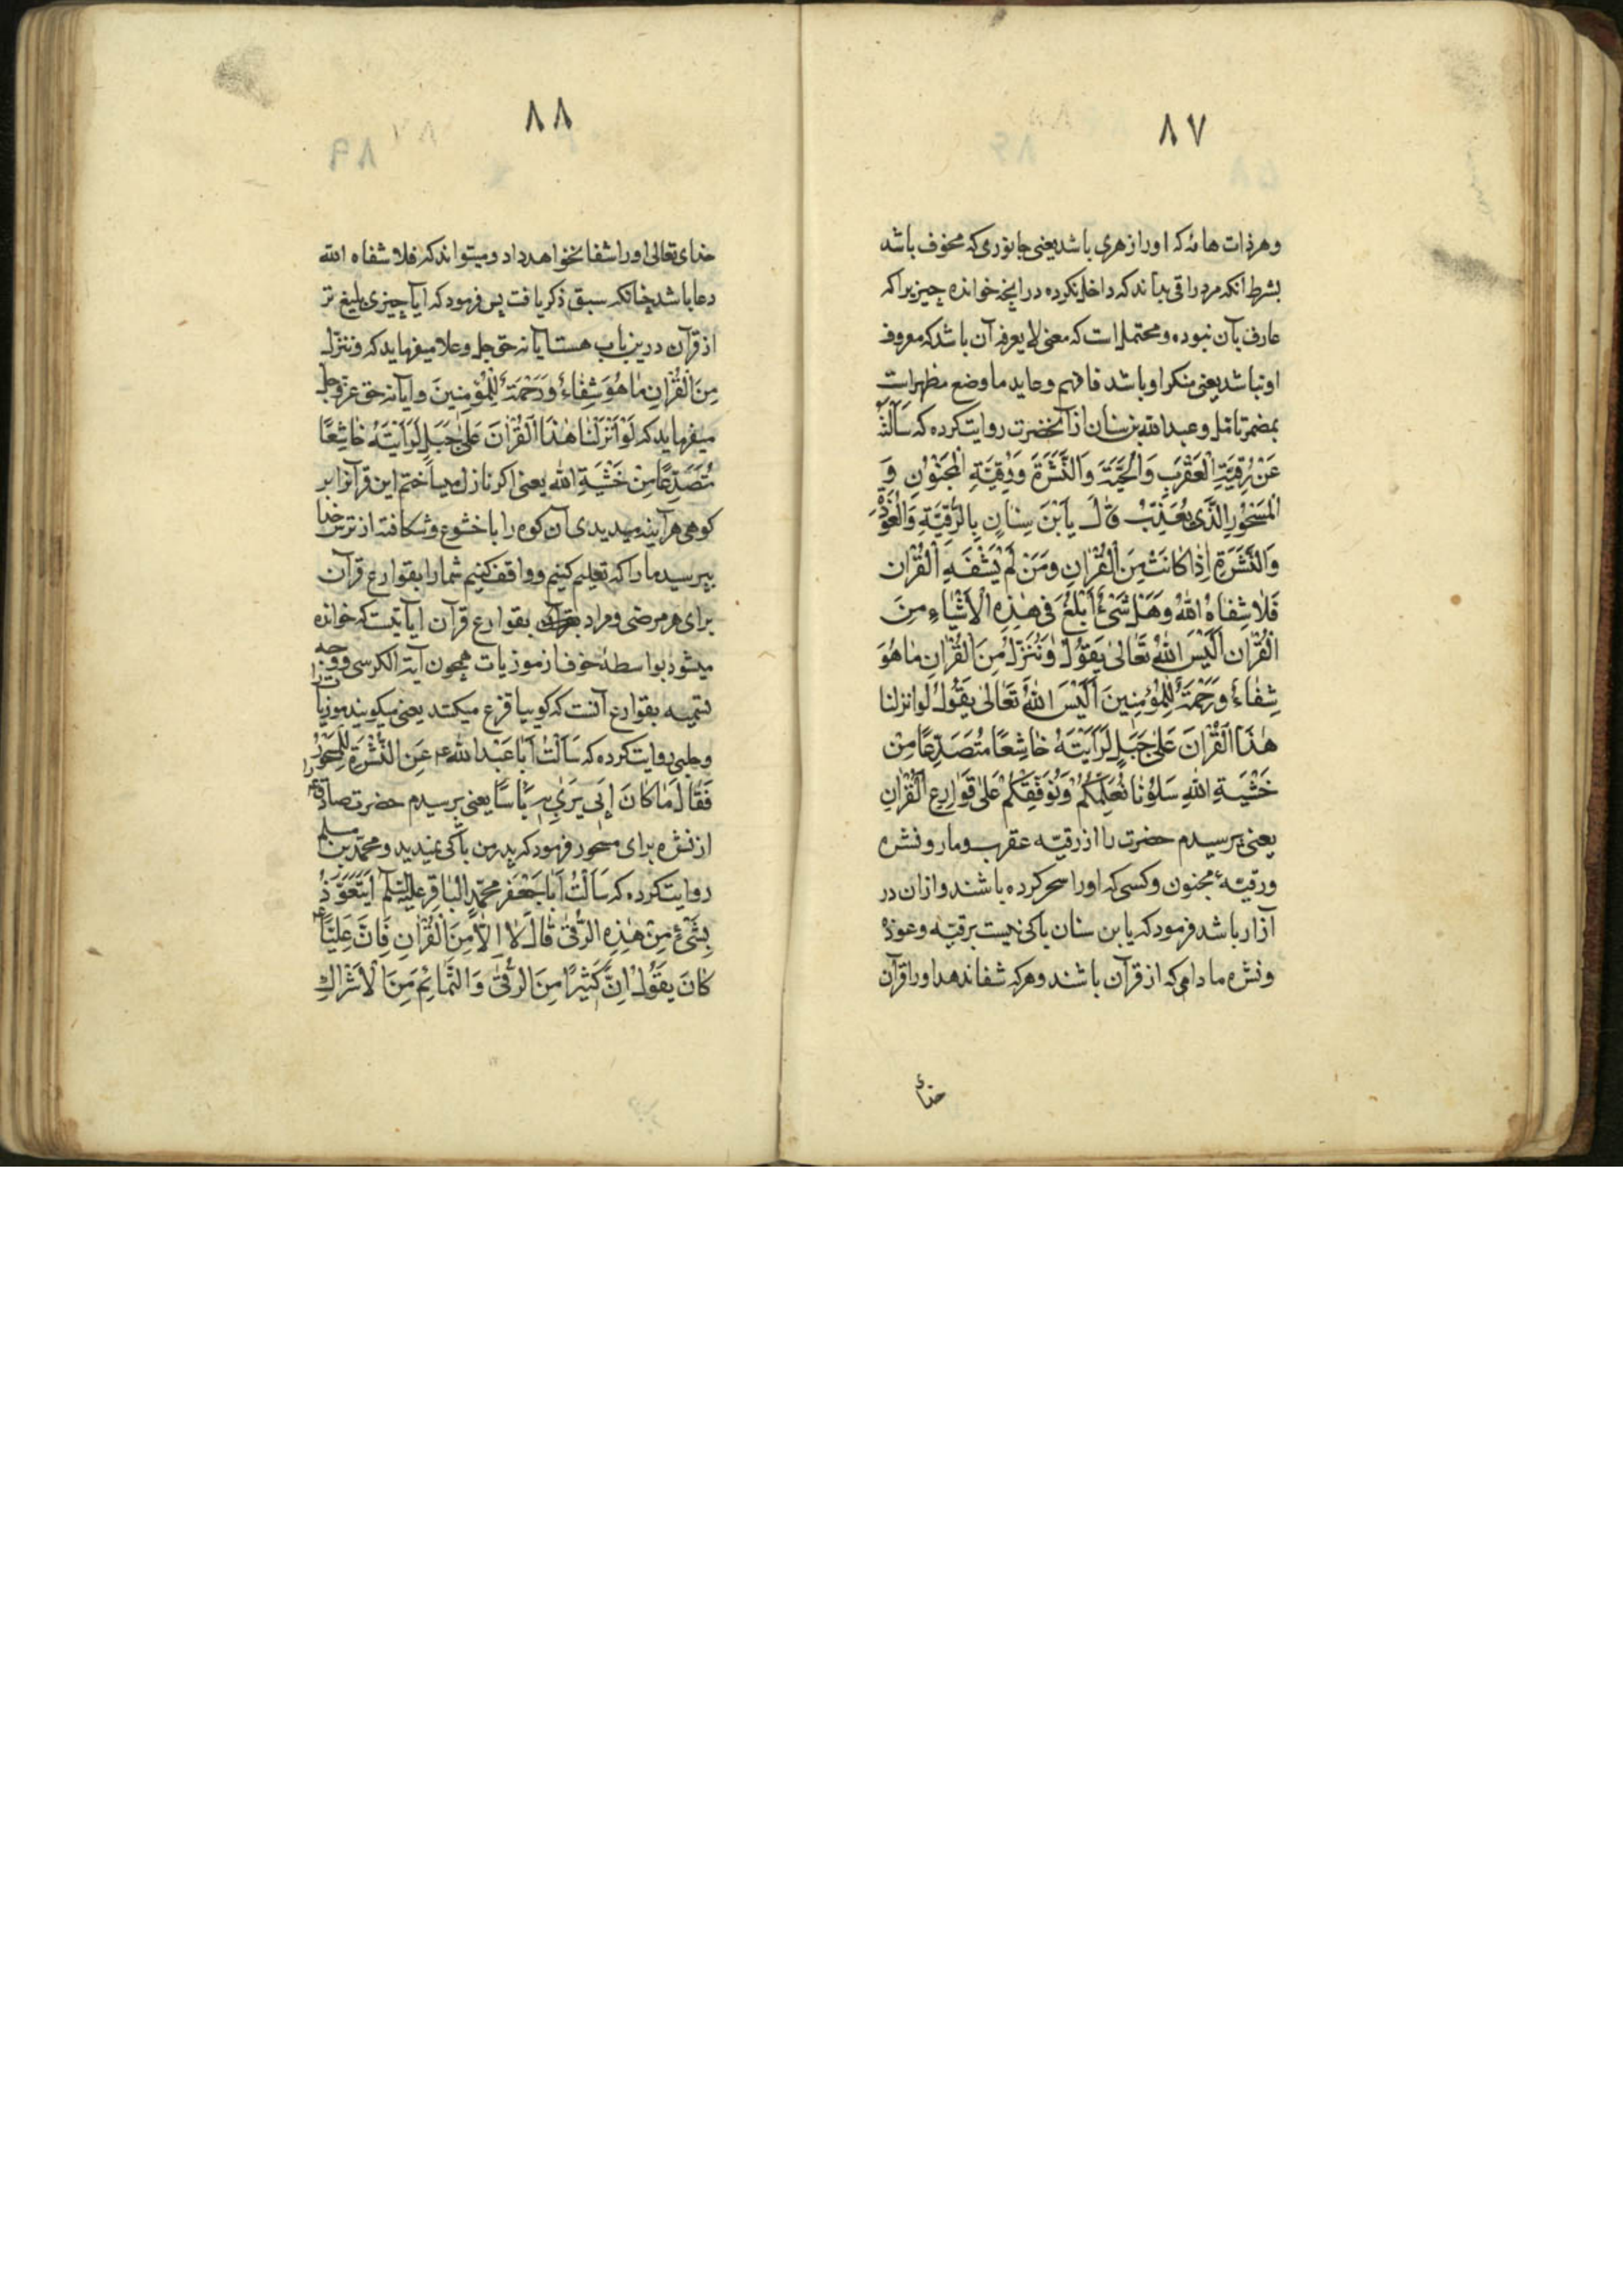 ٨٧
وهر ذات هامّه که او را زهری باشد یعنی جانوری که مخوف باشد
بشرط آنکه مرد راقی بداند که داخل نکرده در آنچه خوانده چیزیرا که
عارف بآن نبوده و محتمل است که معنی لا یعرفه آن باشد که معروف
او نباشد یعنی منکر او باشد فافهم وعاید ما وضع مظهر است
بمضمر تامل وعبدالله بن سنان از آنحضرت روایت کرده که سَأَلْتُهُ
عَنْ رُقِيَّةِ الْعَقْرَبِ وَالْحَيَّةِ وَالنَّشْرَةِ وَرُقِيَّةِ الْمَجْنُونِ وَ
الْمَسْحُورِ الَّذِی یُعَذَّبُ قَالَ یَا بْنَ سِنَانٍ بِالرُّقِيَّةِ وَالْعُوذَةِ
وَالنَّشْرَةِ اِذَا کَانَتْ مِنَ الْقُرْانِ وَمَنْ لَمْ یَشْفَهِ الْقُرْانُ
فَلَا شِفَاهُ اللهُ وَهَلْ شَیْءٌ اَبْلَغُ فِی هٰذِهِ الْاَشْیَاءِ مِنَ
الْقُرْانِ اَلَیْسَ اللهُ تَعَالٰی یَقُولُ وَنُنَزِّلُ مِنَ الْقُرْانِ مَا هُوَ
شِفَاءٌ وَرَحْمَةٌ لِلْمُؤْمِنِینَ اَلَیْسَ اللهُ تَعَالٰی یَقُولُ لَوْ انزلنا
هٰذَا الْقُرْانَ عَلٰی جَبَلٍ لَرَاَیْتَهُ خَاشِعًا مُتَصَدِّعًا مِنْ
خَشْیَةِ اللهِ سَلُونَا نُعَلِّمْکُمْ وَنُوَفِّقْکُمْ عَلٰی قَوَارِعِ الْقُرْانِ
یعنی پرسیدم حضرت را از رقیّه عقرب ومار ونشره
ورقیّهٔ مجنون وکسی که او را سحر کرده باشند وازان در
آزار باشد فرمود که یابن سنان باکی نیست برقیّه وعوذه
ونشره مادامی که از قرآن باشند وهرکه شفا ندهد او را قرآن
خدای
٨٨
خدای تعالی او را شفا نخواهد داد ومیتواند که فلا شفاه الله
دعا باشد چنانکه سبق ذکر یافت پس فرمود که آیا چیزی بلیغ تر
از قرآن درین باب هست آیا نه حق جل وعلا میفرماید که وننزل
مِنَ الْقُرْانِ مَا هُوَ شِفَاءٌ وَرَحْمَةٌ لِلْمُؤْمِنِینَ وآیا نه حق عز وجل
میفرماید که لَوْ اَنْزَلْنَا هٰذَا الْقُرْانَ عَلٰی جَبَلٍ لَرَاَیْتَهُ خَاشِعًا
مُتَصَدِّعًا مِنْ خَشْیَةِ الله یعنی اکر نازل میساختیم این قرآنرا بر
کوهی هرآینه میدیدی آن کوه را با خشوع وشکافته از ترس خدا
بپرسید ما را که تعلیم کنیم وواقف کنیم شما را بقوارع قرآن
برای هر مرضی ومراد بقوارع قرآن آیاتیست که خوانده
میشود بواسطهٔ خوف از موذیات همچون آیة الکرسی ووجه
تسمیه بقوارع آنست که کوییا قرع میکند یعنی میکوبند موذیات را
وحلبی روایت کرده که سَاَلْتُ اَبَا عَبْدِ اللهِ ع عَنِ النَّشْرَةِ لِلْمَسْحُورِ
فَقَالَ مَا کَانَ اَبِی یَرٰی بِهِ بَاْسًا یعنی پرسیدم حضرت صادق ع را
از نشره برای مسحور فرمود که پدر من باکی نمیدید ومحمّد بن مسلم
روایت کرده که سَاَلْتُ اَبَا جَعْفَرٍ مُحَمَّدٍ الْبَاقِرِ علیه السلم اَیَتَعَوَّذُ
بِشَیْءٍ مِنْ هٰذِهِ الرُّقٰی قَالَ لَا اِلَّا مِنَ الْقُرْانِ فَاِنَّ عَلِیًّا ع
کَانَ یَقُولُ اِنَّ کَثِیرًا مِنَ الرُّقٰی وَالتَّمَائِمِ مِنَ الْاَشْرَاكِ